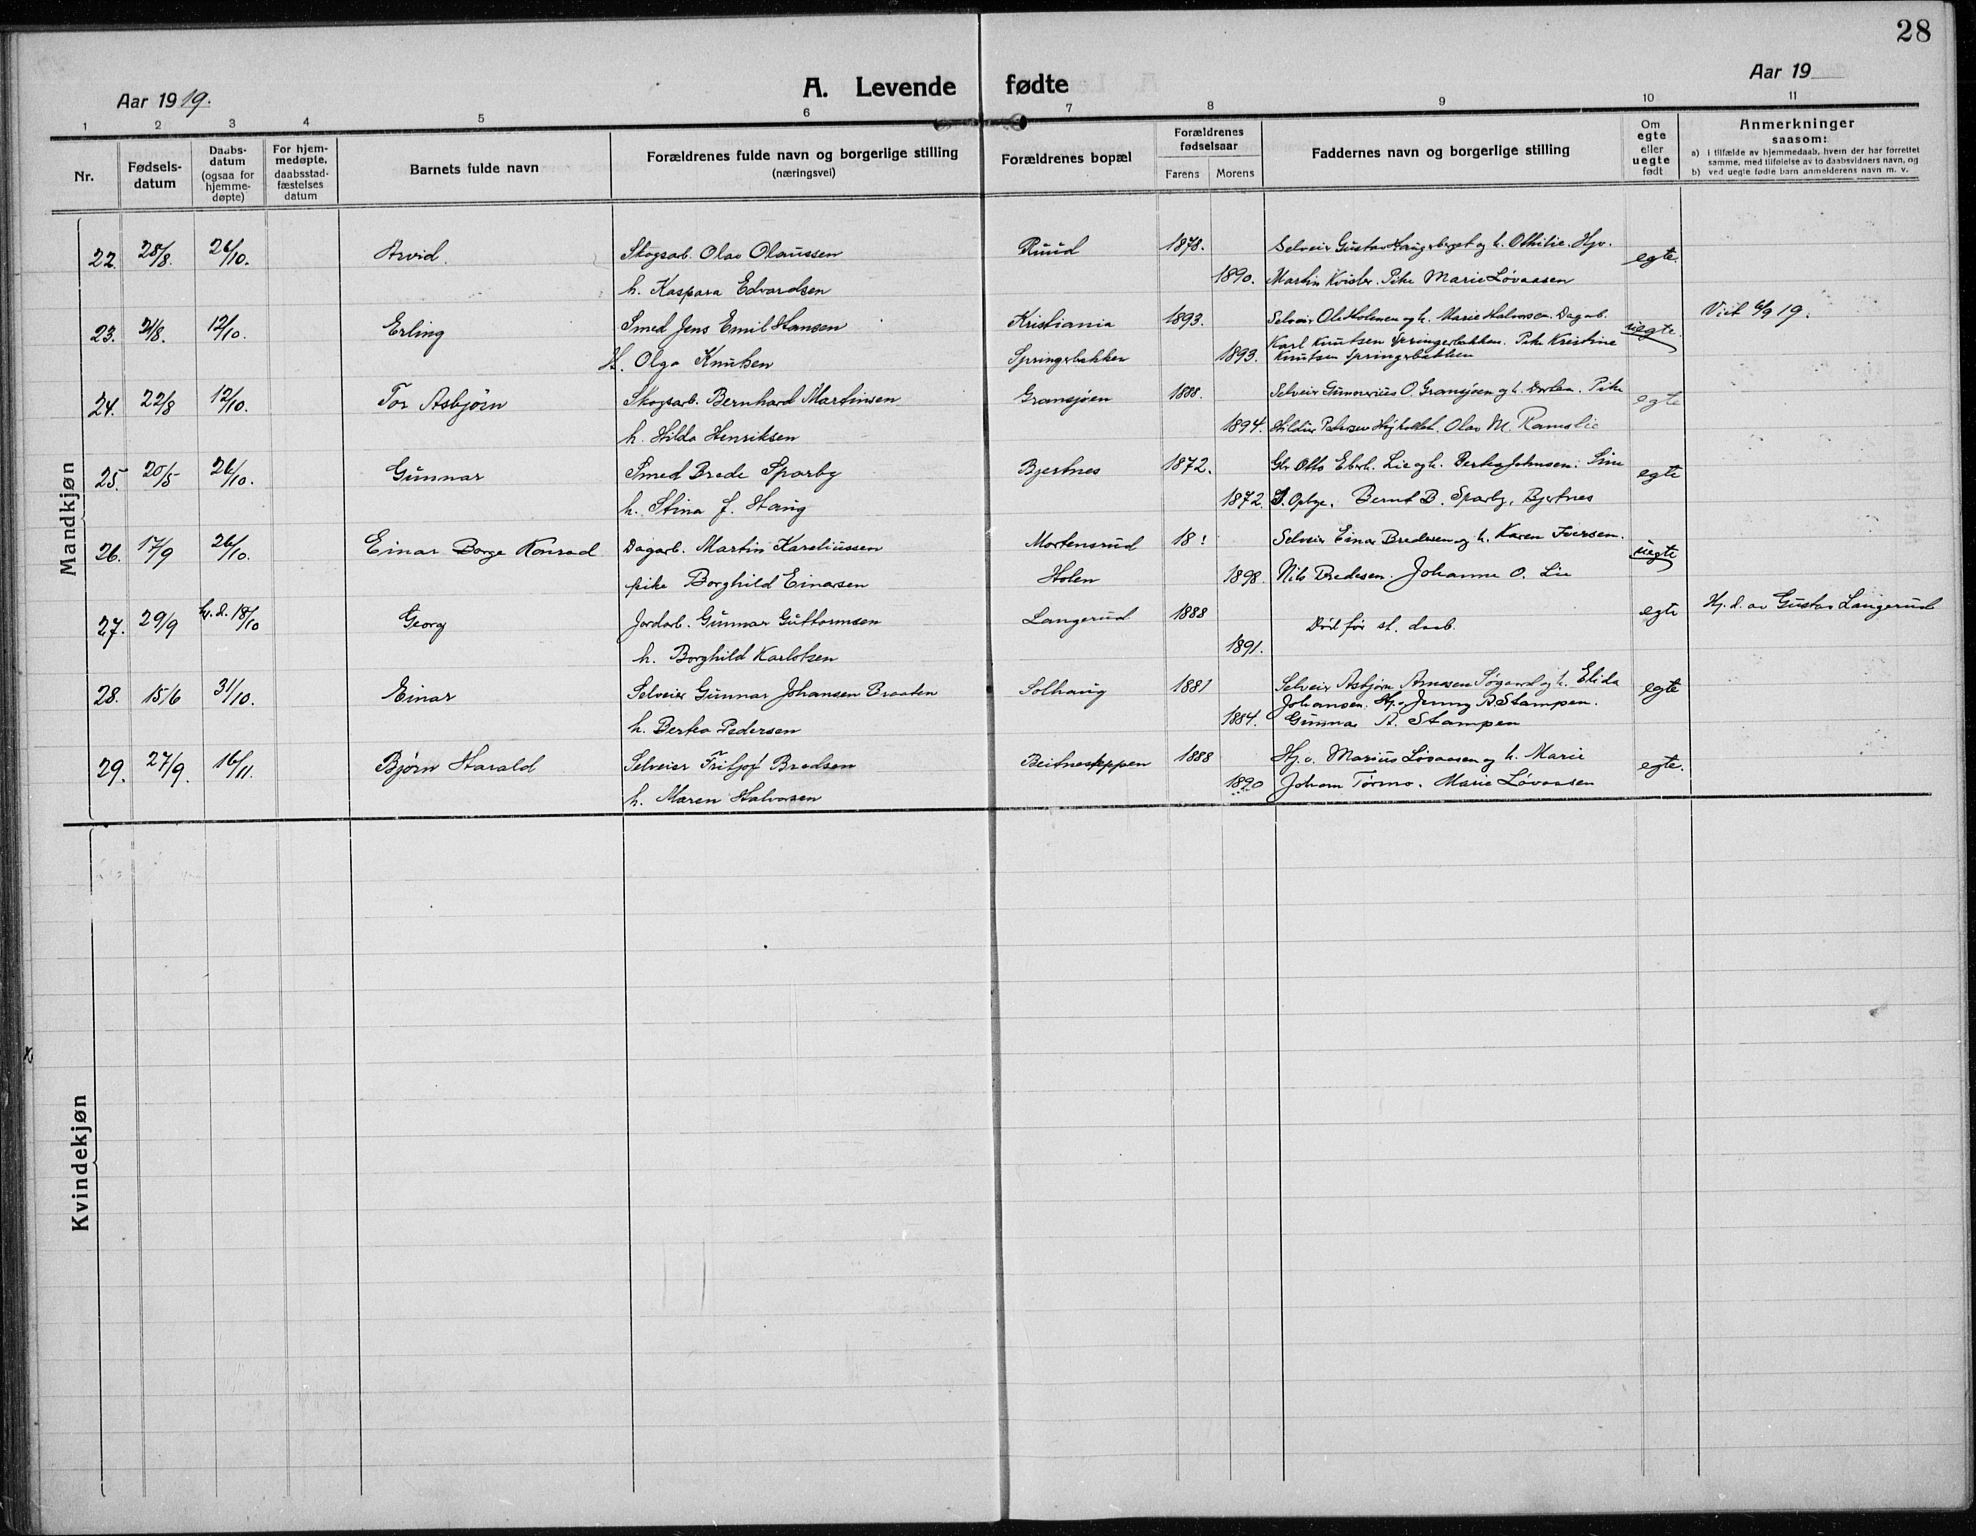 28
Aar 1919.
A. Levende fødte
Aar 19
1 2 3 4 5 6 7 8 9 10 11
Nr.
Fødsels-
datum
Daabs-
datum
(ogsaa for
hjemme-
døpte)
For hjem-
medøpte,
daabsstad-
fæstelses
datum
Barnets fulde navn
Forældrenes fulde navn og borgerlige stilling
(næringsvei)
Forældrenes bopæl
Forældrenes
fødselsaar
Farens Morens
Faddernes navn og borgerlige stilling
Om
egte
eller
uegte
født
Anmerkninger
saasom:
a) i tilfælde av hjemmedaab, hvem der har forrettet
samme, med tilføielse av to daabsvidners navn, og
b) ved uegte fødte barn anmelderens navn m. v.
Mandkjøn
22. 28/8. 26/10. Arvid. Skogsarb. Olav Olaussen Ruud 1878. Selveier Gustav Haugerberget og h. Othilie. Hjv. egte.
h. Kaspara Edvardsen 1890. Martin Kvisler. Pike Marie Løvaasen
23. 21/8. 12/10. Erling Smed Jens Emil Hansen Kristiania 1893. Selveier Ole Holmen og h. Marie Halvorsen. Dagarb. uegte. Vist 6/9 19.
Olga Knutsen Springerbakken 1893. Karl Knutsen Springerbakken. Pike Kristine
Knutsen Springerbakken
24. 22/8 12/10. Tor Asbjørn Skogsarb. Bernhard Martinsen Gransjøen 1888. Selveier Gunnerius O. Gransjøen og h. Dorthea. Pike egte
h. Hilda Henriksen 1894. Hildur Pedersen Højholtet. Olav M. Ramslie
25. 20/5 26/10. Gunnar Smed Brede Sparby Bjertnes 1872. Gbr. Otto Eberh. Lie og h. Berthe Johnsen. Sine egte
h. Stina f. Haug 1872. Opbye. Bernt B. Sparby, Bjertnes
26. 17/9 26/10. Einar Borge Konrad Dagarb. Martin Kareliussen Mortensrud 18! Selveier Einar Bredesen og h. Karen Iversen. uegte
pike Borghild Einarsen Holen 1898. Nils Bredesen. Johanne O. Lie
27. 29/9 hj.d. 18/10 Georg Jordarb. Gunnar Guttormsen Langerud 1888 Død før st. daab. egte Hj. d. av Gustav Langerud
h. Borghild Karlotsen 1891.
28. 15/6 31/10. Einar Selveier Gunnar Johansen Braaten Solhaug 1881 Selveier Asbjørn Arnesen Søgaard og h. Elida egte
h. Berthe Pedersen 1884. Johansen. Hj. v. Jenny A Stampen.
Gunnar A. Stampen
29. 27/9. 16/11. Bjørn Harald Selveier Fritjof Bredsen Beitneseppen 1888 Hj. v. Marius Løvaasen og h. Marie egte.
h. Maren Halvorsen 1890 Johan Tørmo. Marie Løvaasen
Kvindekjøn